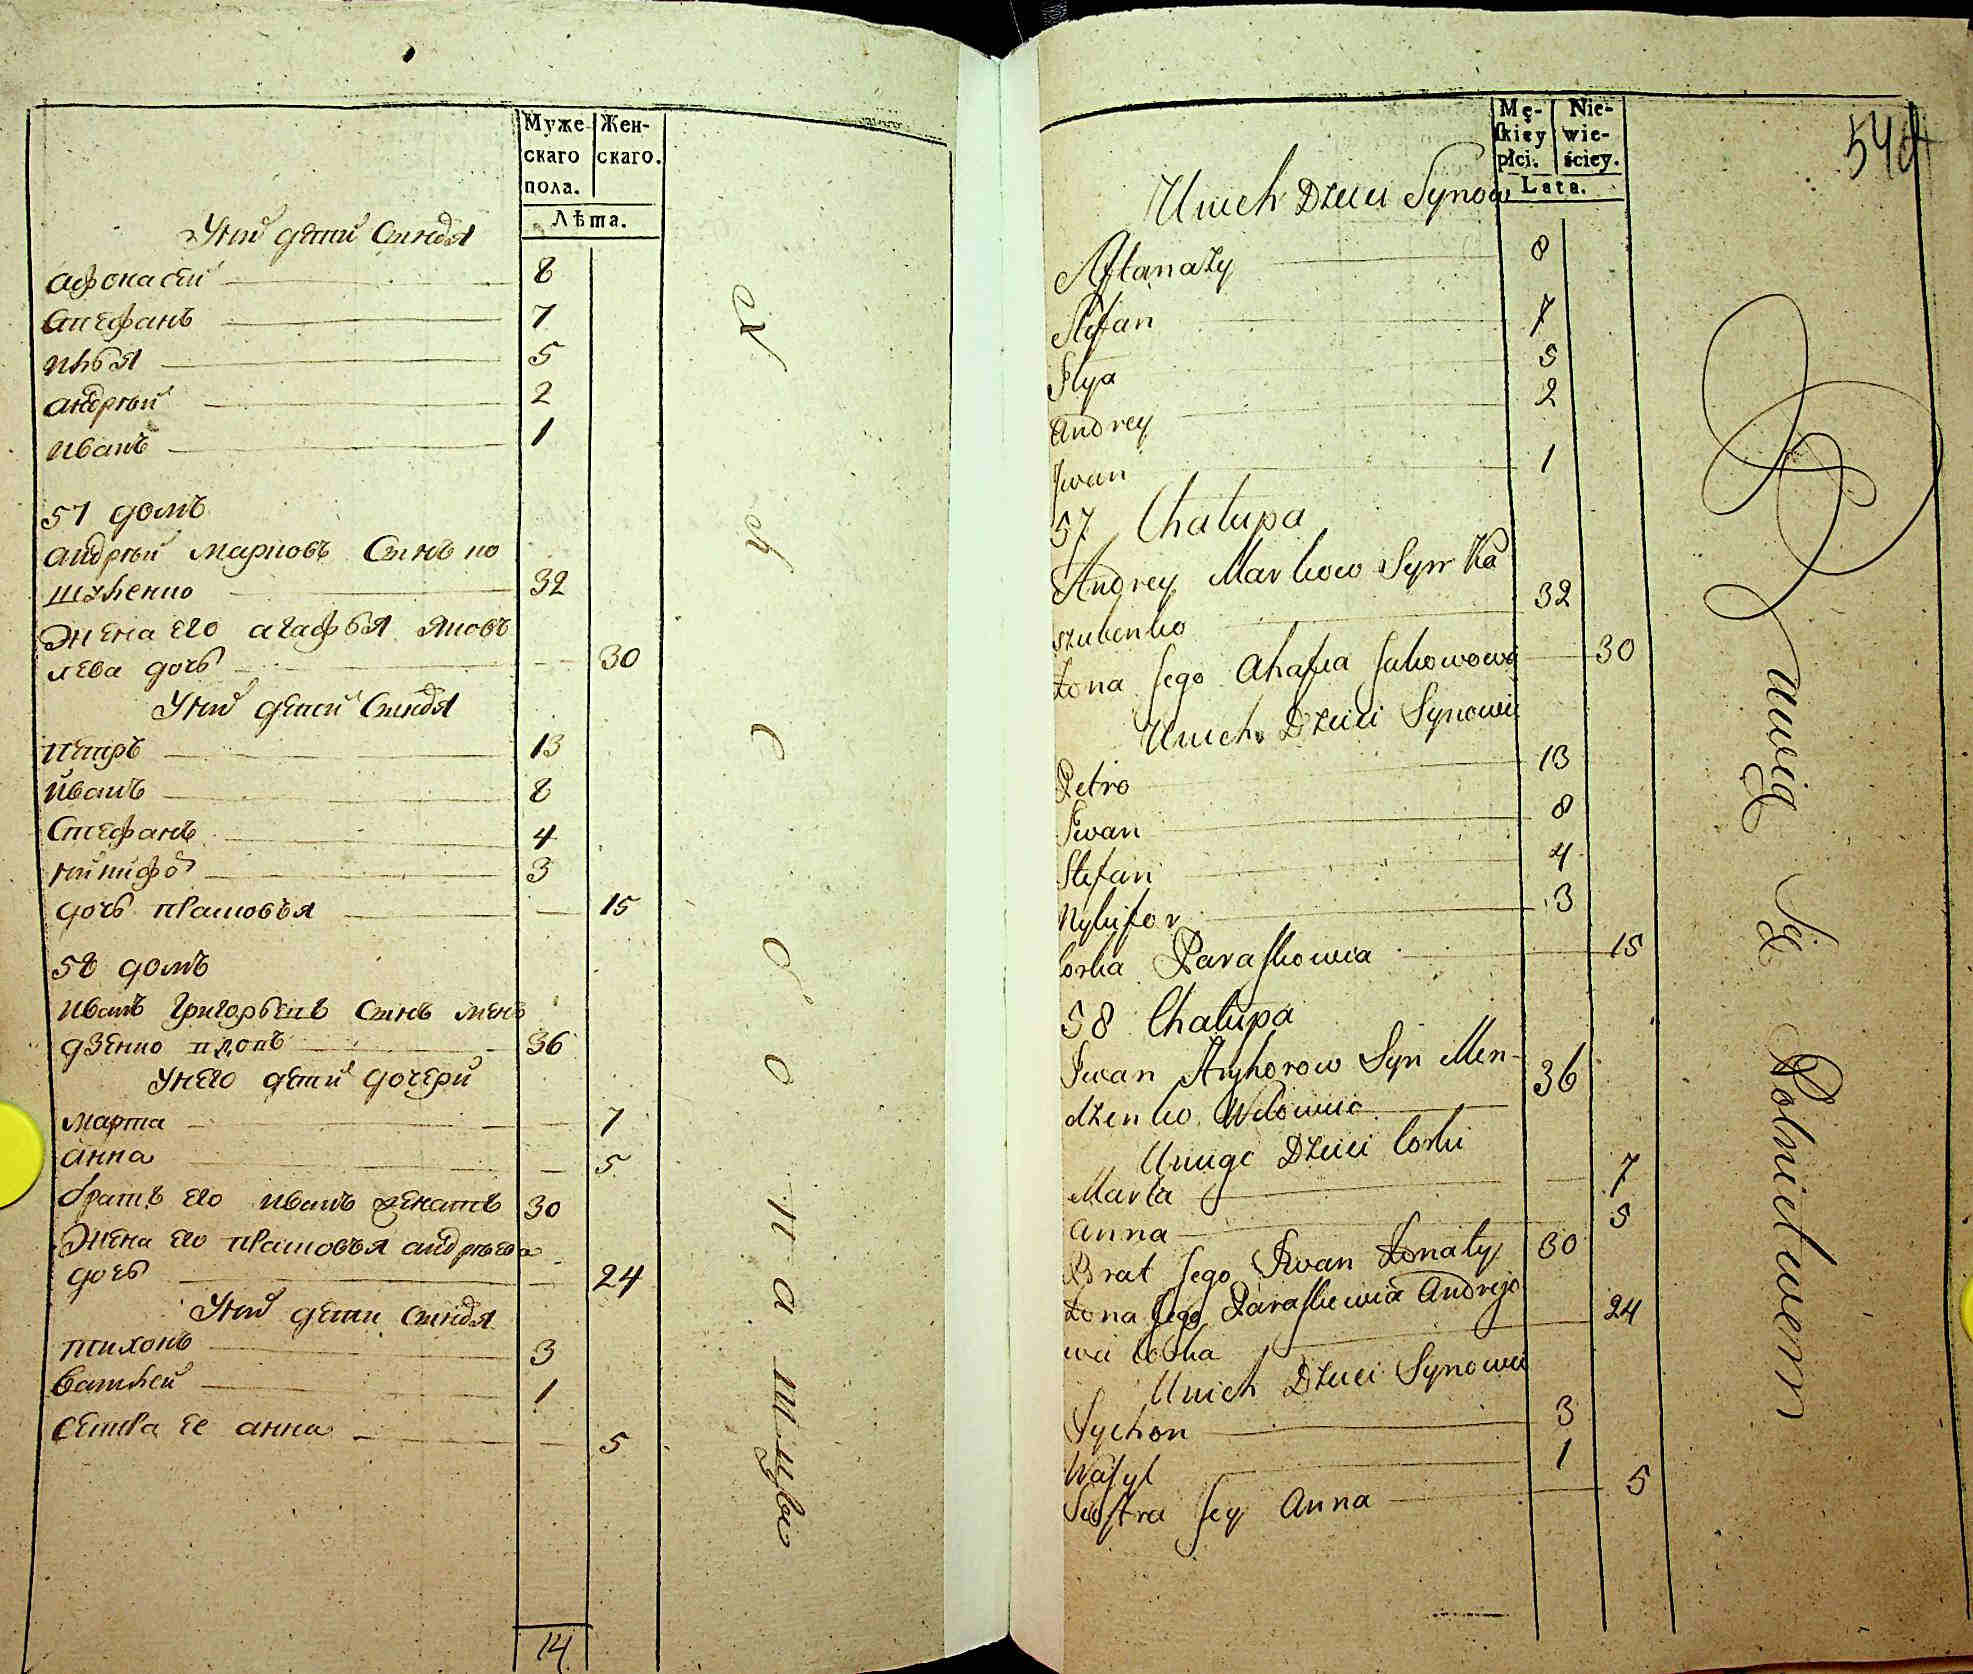 Муже
скаго
пола.
Жен-
скаго.
Лѣта.
У них дети Синовя
Афонасей 8
Стефанъ 7
Илья 5
андрѣй 2
иванъ 1
57 домъ
андрѣй марковъ Синъ ко
шуленко 32
жена его агафья яков
лева дочь 30
У них дети Синовя
петръ 13
иванъ 8
Стефанъ 4
никифо 3
дочь прасковья 15
58 домъ
иванъ григорьевъ Синъ мен
дзенко вдовъ 36
У него дети дочери
марта 7
анна 5
братъ его иванъ женатъ 30
жена его прасковья андрѣева
дочь 24
У них дети синовя
тихонъ 3
василей 1
сестра ее анна 5
14
Mę-
skiey
płci.
Nie-
wie-
ściey.
Lata.
544
Unich Dzieci Synow
Aftanazy 8
Stefan 7
Ilya 5
Andrey 2
Iwan 1
57 Chałupa
Andrey Markow Syn Ko
szulenko 32
Żona Jego Ahafia Jakowowa 30
Unich Dzieci Synowie
Petro 13
Iwan 8
Stefan 4
Nykifor 3
Corka Paraskowia 15
58 Chałupa
Iwan Hryhorow Syn Men-
dzenko Wdowiec 36
Uniego Dzieci Corki
Marta 7
Anna 5
Brat Jego Iwan Żonaty 30
Żona Jego Paraskiewia Andrejo
wa Corka 24
Unich Dzieci Synowie
Tychon 3
Wasyl 1
Siostra Jey Anna 5
Bawią Się Rolnictwem